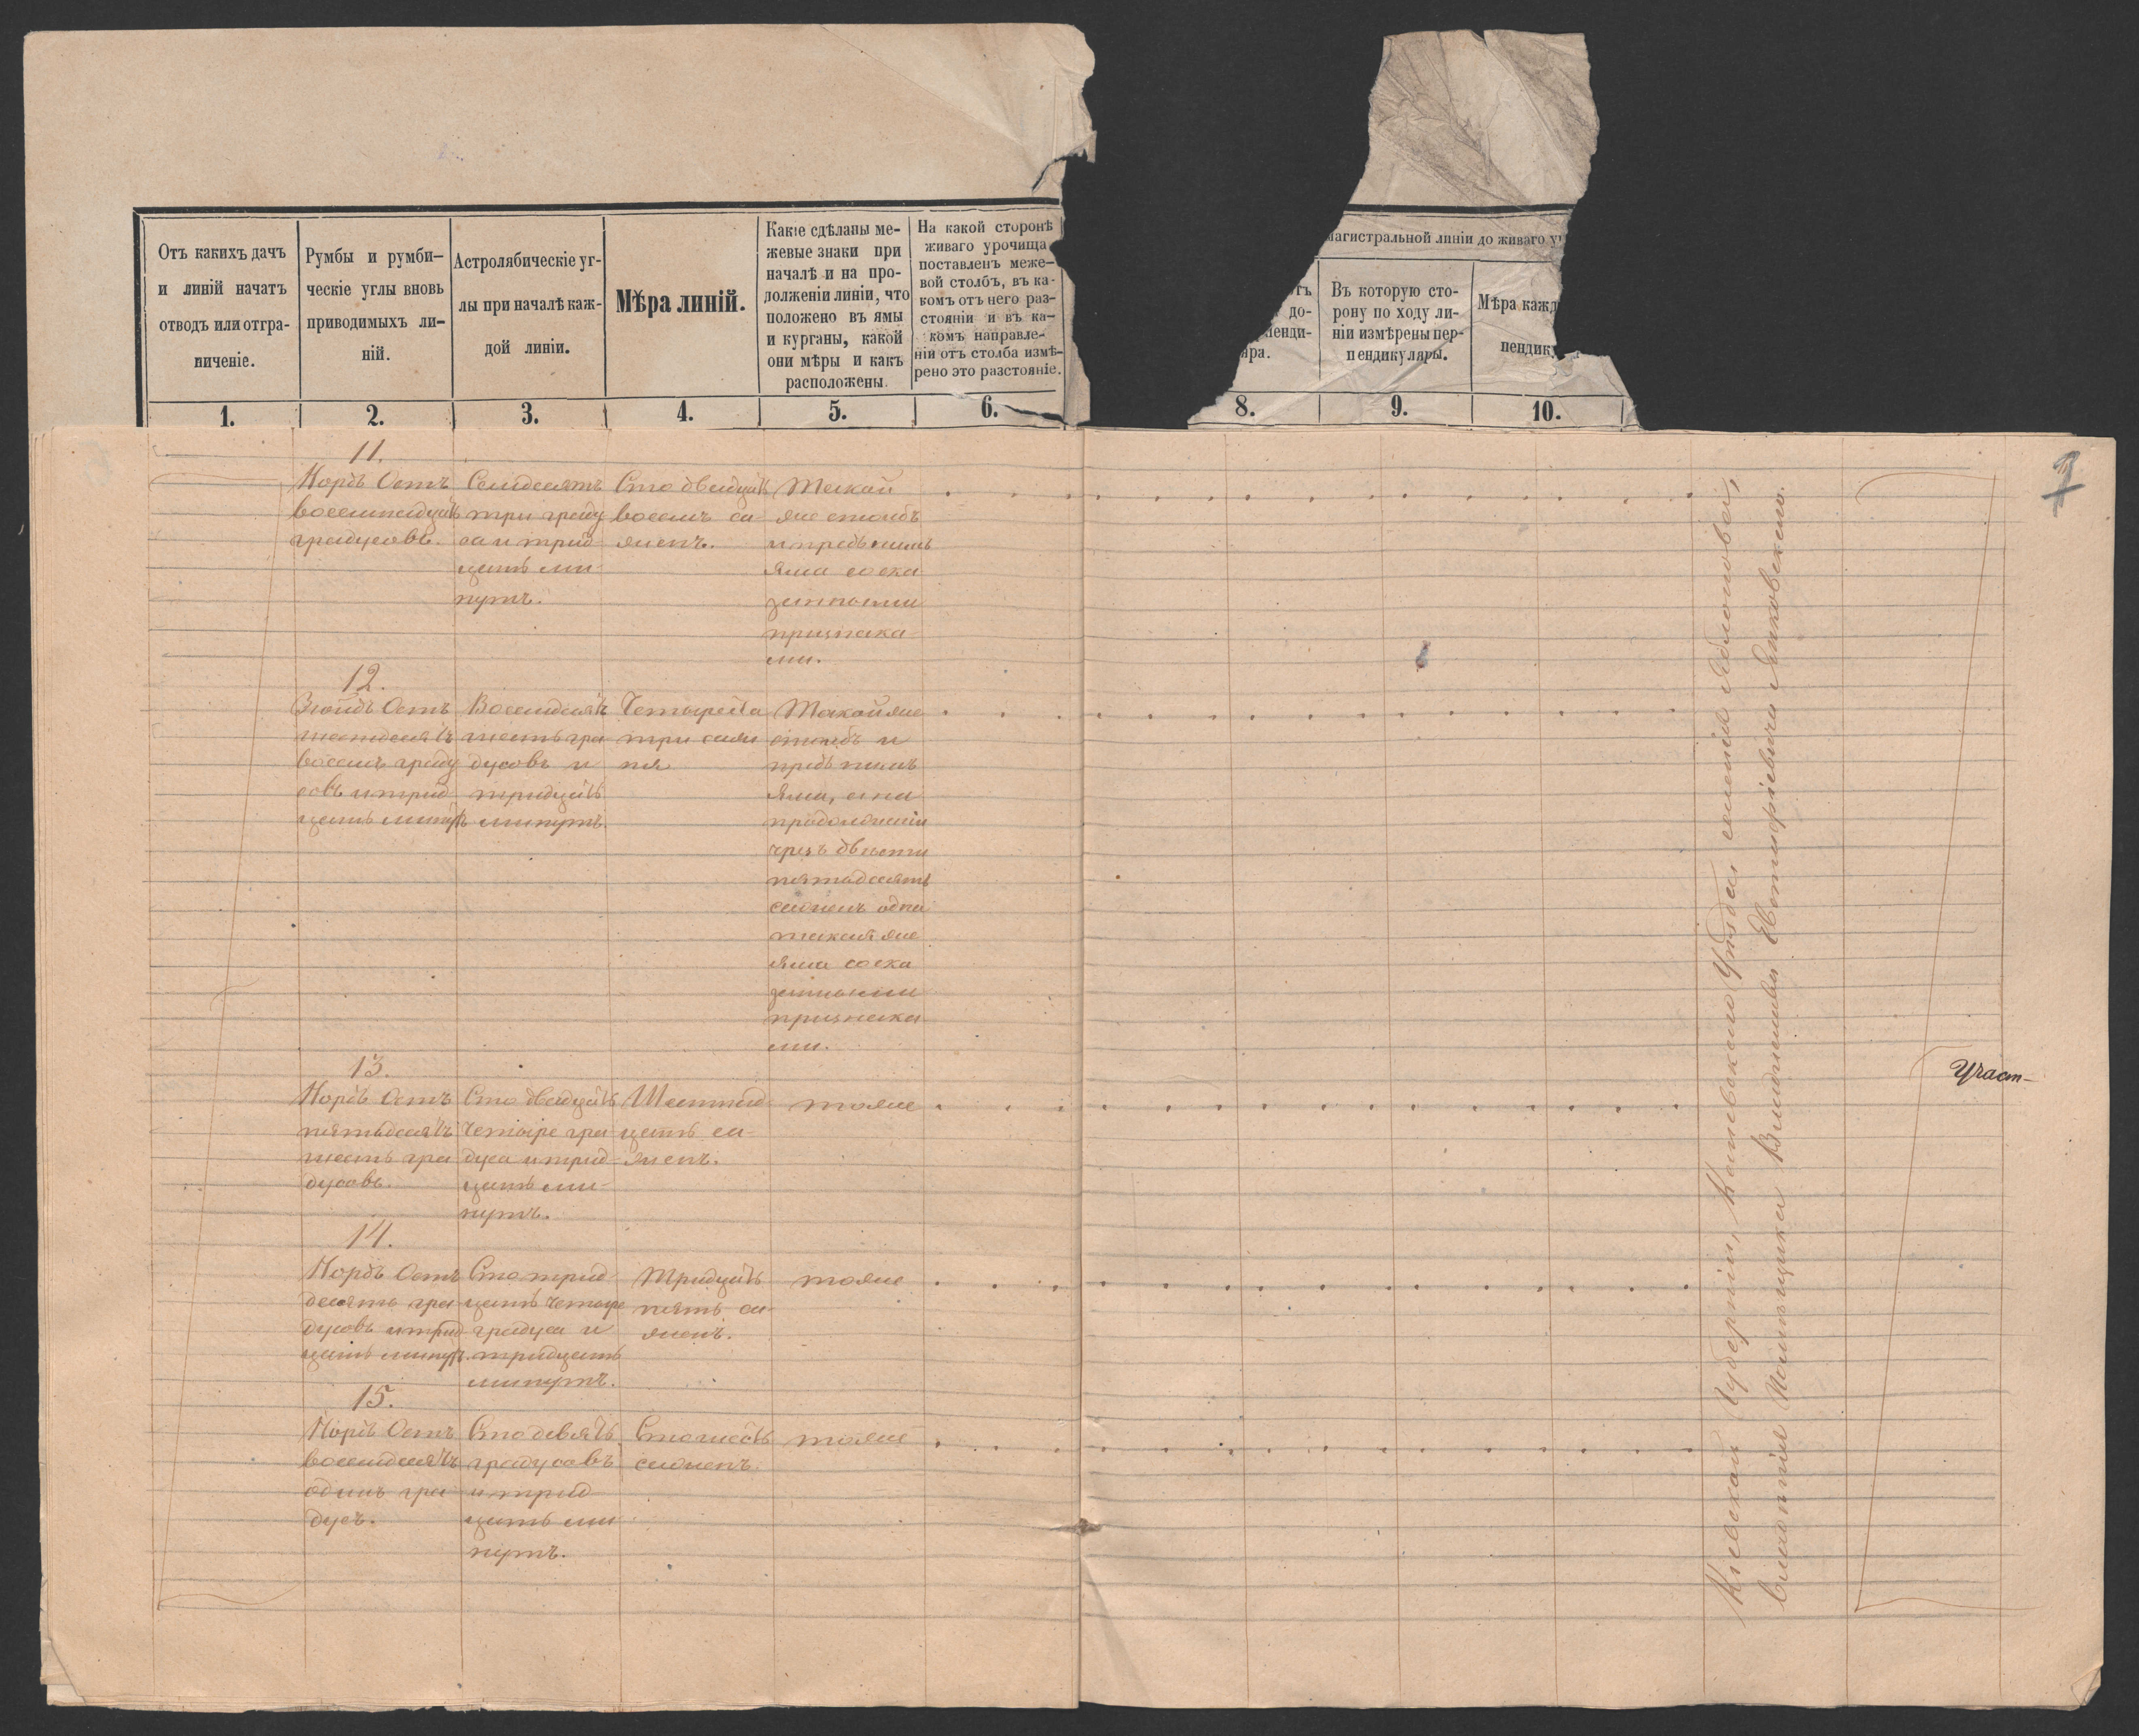 Отъ какихъ дачъ
и линій начатъ
отводъ или отгра-
ниченіе.
Румбы и румби-
ческіе углы вновь
приводимыхъ ли-
ній.
Астролябическіе уг-
лы при началѣ каж-
дой линіи.
Мѣра линій.
Какіе сдѣланы ме-
жевые знаки при
началѣ и на про-
долженіи линіи, что
положено въ ямы
и курганы, какой
они мѣры и какъ
расположены.
На какой сторонѣ
живаго урочища
поставленъ меже-
вой столбъ, въ ка-
комъ отъ него раз-
стояніи и въ ка-
комъ направле-
ніи отъ столба измѣ-
рено это разстояніе.
магистральной линіи до живаго у
до-
пенди-
яра.
Въ которую сто-
рону по ходу ли-
ніи измѣрены пер-
пендикуляры.
Мѣра кажд
пендик
1.
2.
3.
4.
5.
6.
8.
9.
10.
7
11.
Нордъ Остъ
восемнадцать
градусовъ.
Семдесятъ
три граду
са и трид
цать ми-
нутъ.
Сто двадцать
восемъ са-
женъ.
Такой
же столбъ
и предъ нимъ
яма со ска
занными
призпака-
ми.
12.
Зюйдъ Остъ
шестдесятъ
восемъ граду
совъ и трид
цать минутъ
Восемдесятъ
шесть гра
дусовъ и
тридцать
минутъ.
Четыреста
три саже
ня
Такой же
столбъ и
предъ нимъ
яма, а на
продолженіи
чрезъ двѣсти
пятьдесятъ
саженъ одна
такая же
яма со ска
занными
признака
ми.
13.
Нордъ Остъ
пятьдесятъ
шесть гра
дусовъ.
Сто двадцать
четыре гра
дуса и трид-
цать ми-
нутъ.
Шестнад-
цать са-
женъ.
тоже
14.
Нордъ Остъ
десять гра
дусовъ и трид
цать минутъ.
Сто трид
цать четыре
градуса и
тридцать
минутъ.
Тридцать
пять са-
женъ.
тоже
15.
Нордъ Остъ
восемдесятъ
одинъ гра
дусъ.
Сто девять
градусовъ
и трид
цать ми
нутъ.
Сто шесть
саженъ.
тоже
Кіевской Губерніи, Каневскаго Уѣзда, имѣнія Яблоновки,
владѣнія Помѣщика Владислава Яновскаго.
Участ-